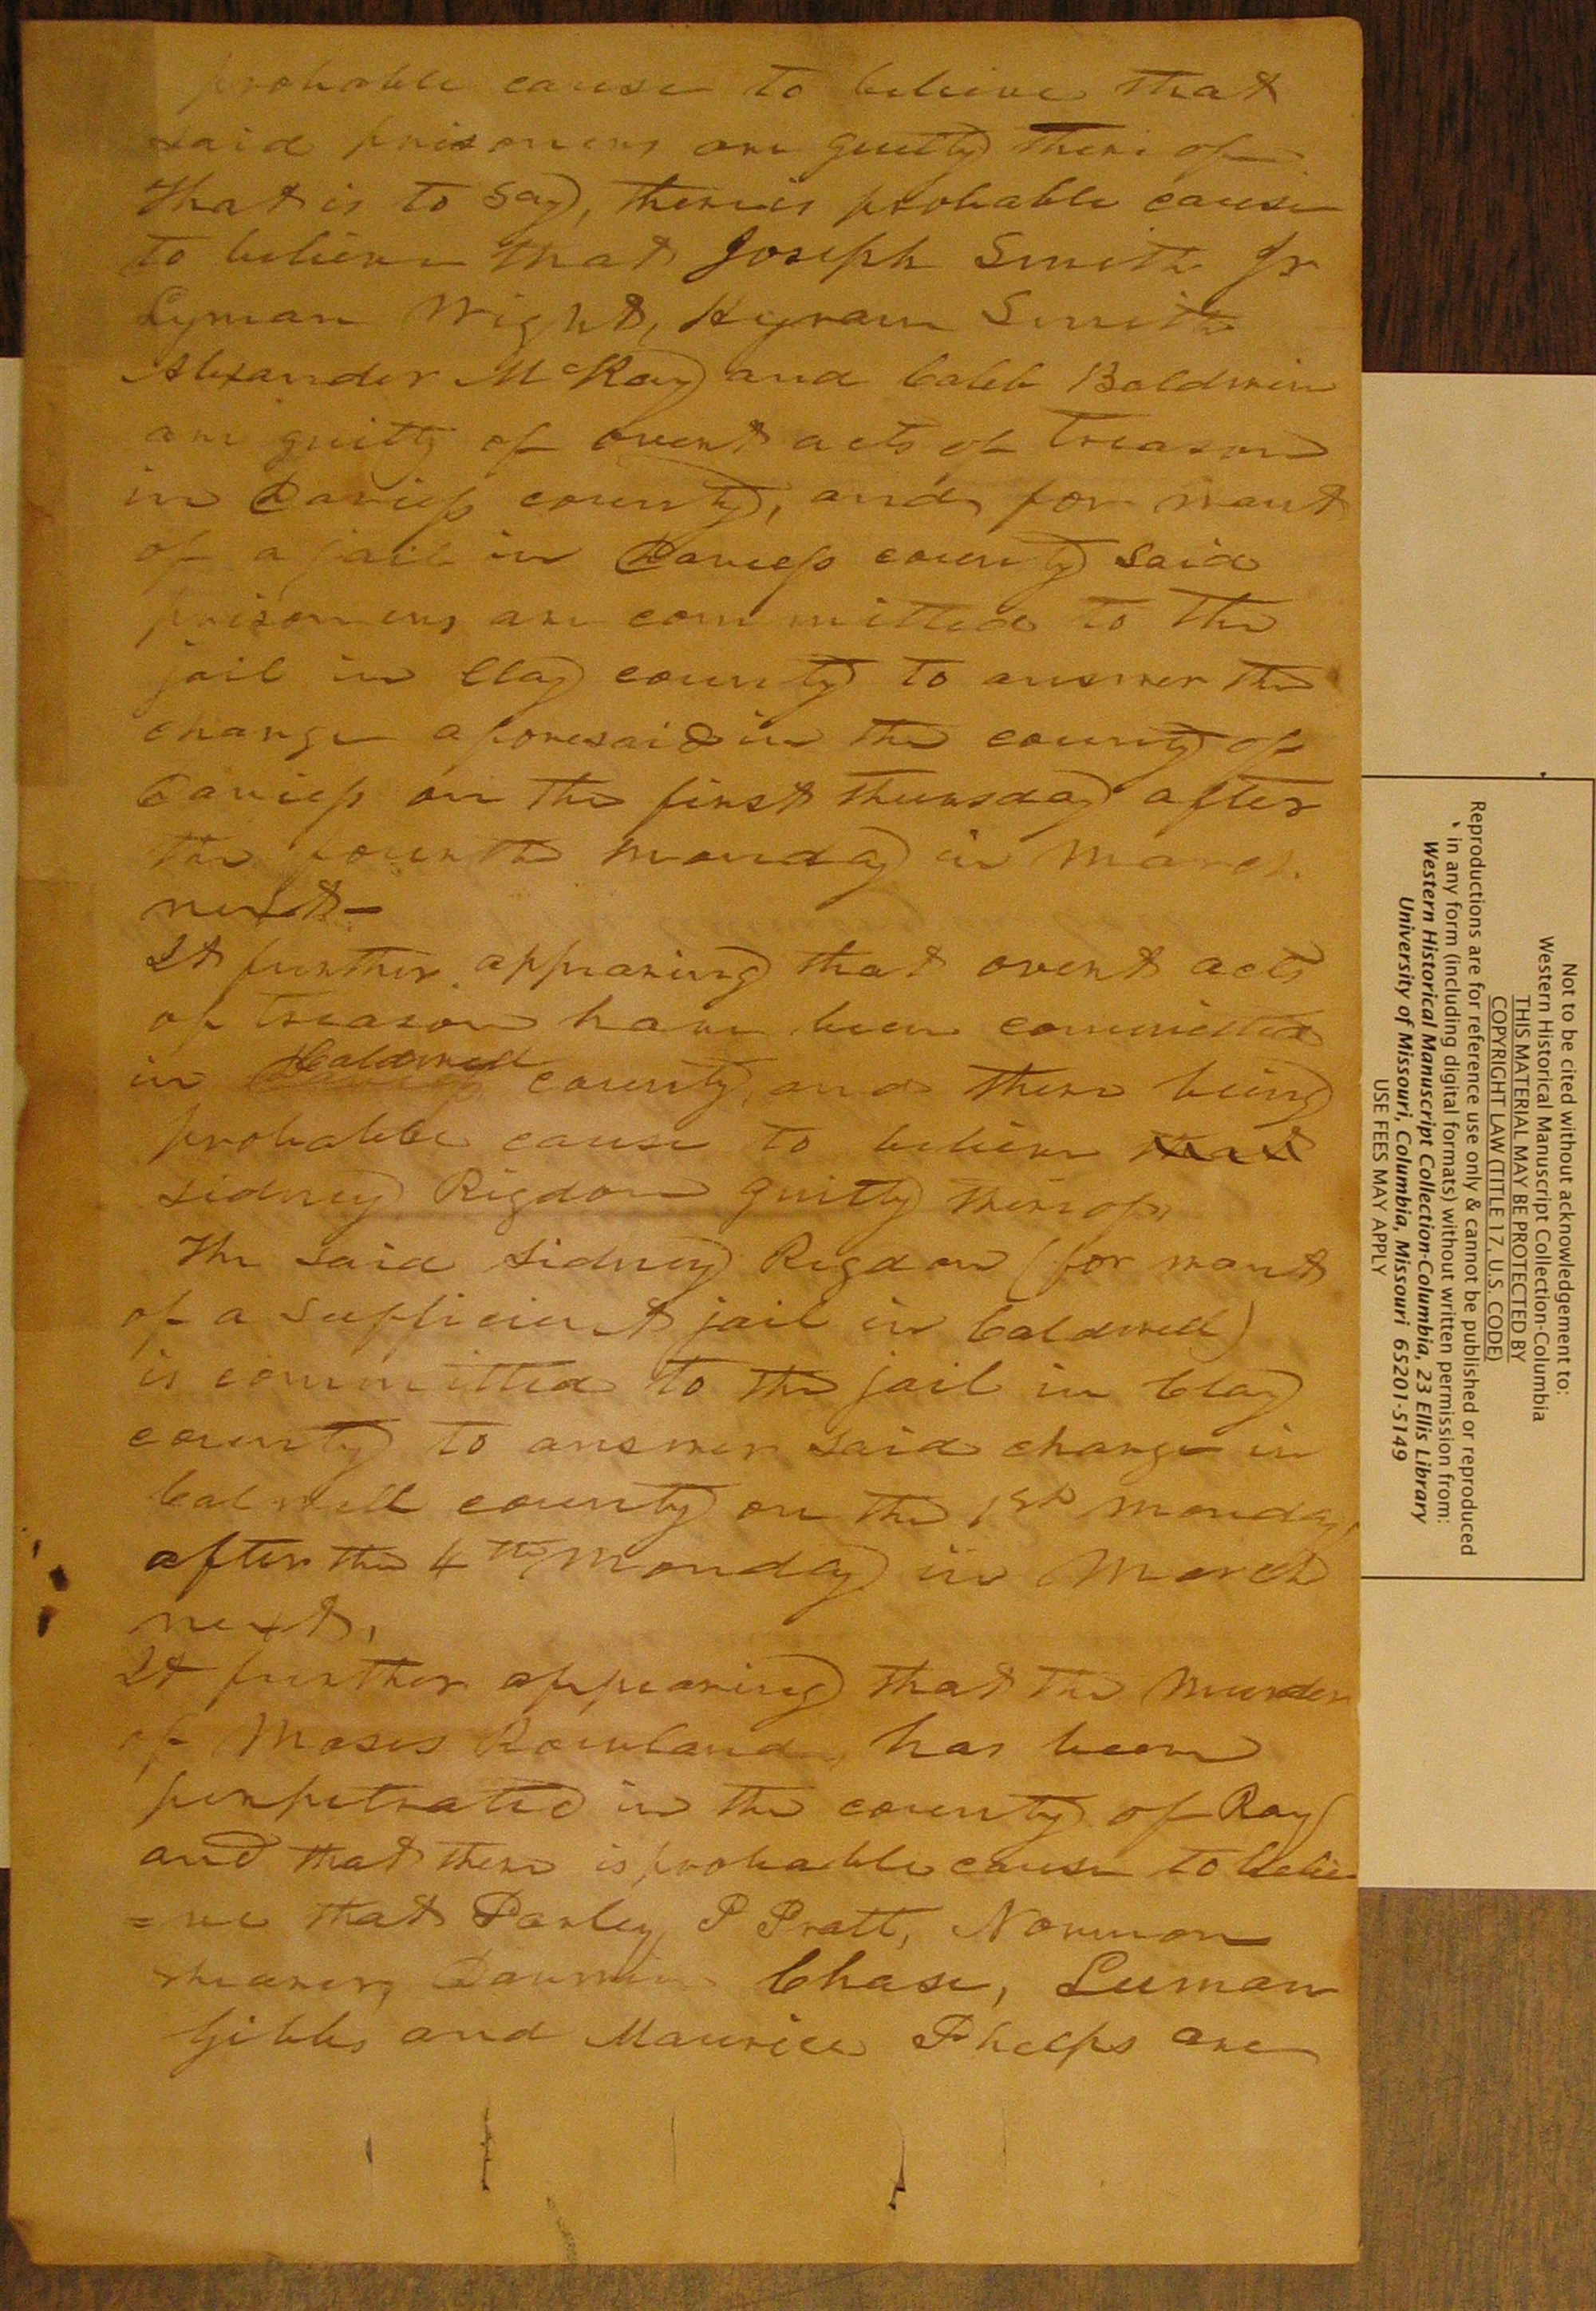 probable cause to believe that
said prisoners are guilty there of
that is to say, there is probable cause
to believe that Joseph Smith Jr
Lyman Wight, Hyram Smith
Alexander McRay and Caleb Baldwin
are guilty of overt acts of treason
in Daviess county, and for want
of a jail in Daviess county said
prisoners are committed to the
jail in Clay county to answer the
charge aforesaid in the county of
Daviess on the first thursday after
the fourth monday in March
next-
It further appearing that overt acts
of treason have been committed
in Caldwell county, and there being
probable cause to believe that
Sidney Rigdon guilty thereof,
The said Sidney Rigdon (for want
of a sufficient jail in Caldwell)
is committed to the jail in Clay
county to answer said charge in
Calwell county on the 1st monday,
after the 4th Monday in March
next,
It further appearing that the Murder
of Moses Rowland has been
perpetrated in the county of Ray
and that there is probable cause to belie
=ve that Parley P Pratt, Norman
shearer, Darwin Chase, Luman
Gibbs and Maurice Phelps are
Not to be cited without acknowledgement to:
Western Historical Manuscript Collection-Columbia
THIS MATERIAL MAY BE PROTECTED BY
COPYRIGHT LAW (TITLE 17, U.S. CODE)
Reproductions are for reference use only & cannot be published or reproduced
in any form (including digital formats) without written permission from:
Western Historical Manuscript Collection-Columbia, 23 Ellis Library
University of Missouri, Columbia, Missouri 65201-5149
USE FEES MAY APPLY